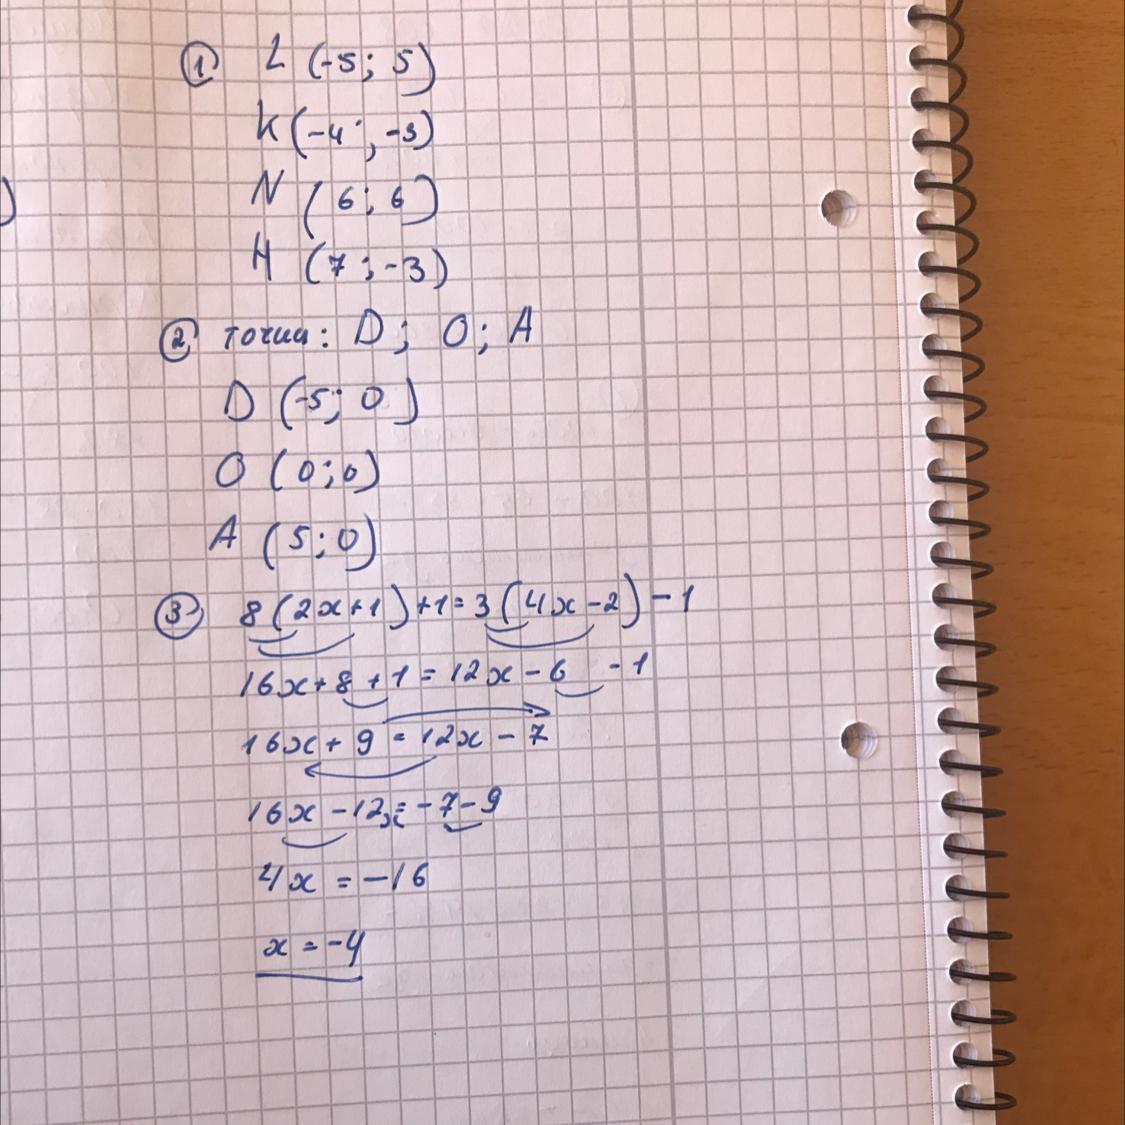 ① L (-5; 5)
K (-4; -3)
N (6; 6)
H (7; -3)
② точки: D; O; A
D (-5; 0)
O (0; 0)
A (5; 0)
③ 8(2x+1)+1=3(4x-2)-1
16x+8+1=12x-6-1
16x+9=12x-7
16x-12x=-7-9
4x=-16
x=-4